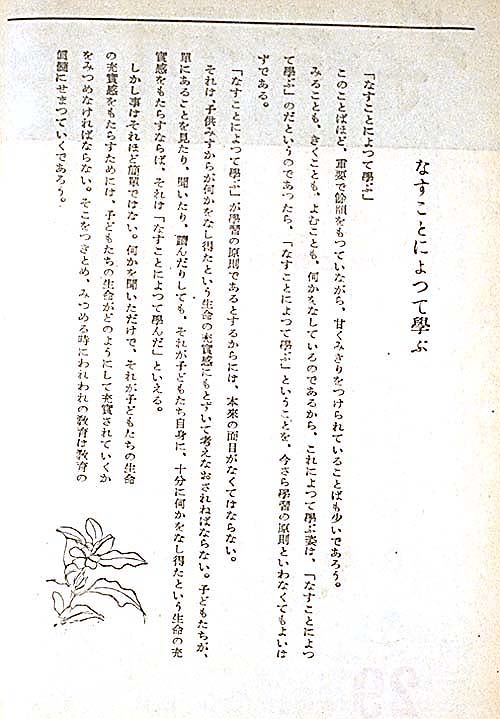 なすことによつて學ぶ
「なすことによつて學ぶ」
このことばほど、重要で餘韻をもつていながら、甘くみきりをつけられていることばも少いであろう。
みることも、きくことも、よむことも、何かをなしているのであるから、これによつて學ぶ姿は、「なすことによつ
て學ぶ」のだというのであつたら、「なすことによつて學ぶ」ということを、今さら學習の原則といわなくてもよいは
ずである。
「なすことによつて學ぶ」が學習の原則であるとするからには、本來の面目がなくてはならない。
それは、子供みずからが何かをなし得たという生命の充實感にもとずいて考えなおされねばならない。子どもたちが、
單にあることを見たり、聞いたり、讀んだりしても、それが子どもたち自身に、十分に何かをなし得たという生命の充
實感をもたらすならば、それは「なすことによつて學んだ」といえる。
しかし事はそれほど簡單ではない。何かを聞いただけで、それが子どもたちの生命
の充實感をもたらすためには、子どもたちの生命がどのようにして充實されていくか
をみつめなければならない。そこをつきとめ、みつめる時にわれわれの教育は教育の
眞髓にせまつていくであろう。